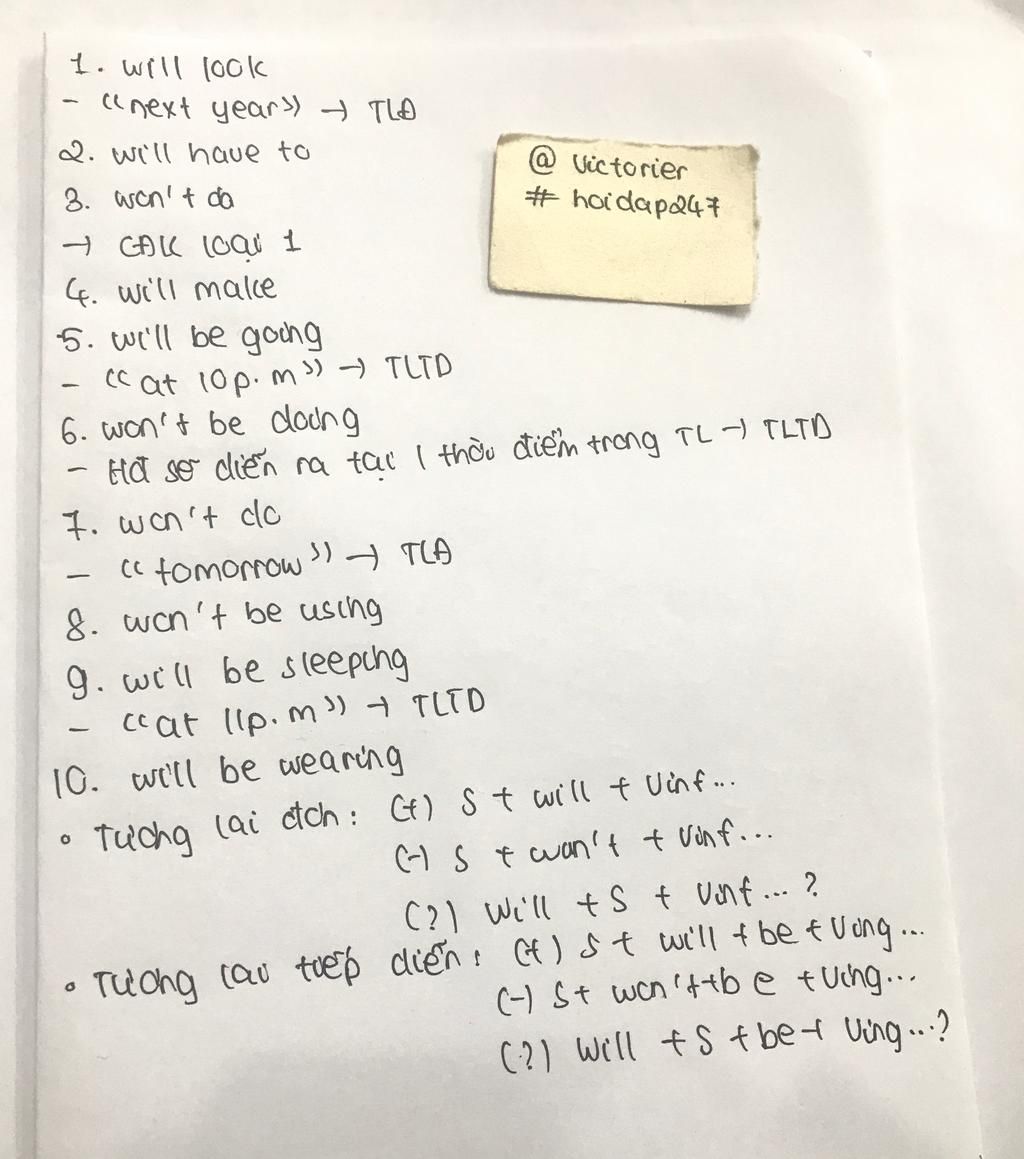 1. will look
- «next year» → TLĐ
2. will have to
3. won't do
→ CĐK loại 1
4. will make
5. will be going
- «at 10p.m» → TLTD
6. won't be doing
- HĐ sẽ diễn ra tại 1 thời điểm trong TL → TLTD
7. won't do
- «tomorrow» → TLĐ
8. won't be using
9. will be sleeping
- «at 11p.m» → TLTD
10. will be wearing
• Tương lai đơn: (+) S + will + Vinf...
(-) S + won't + Vinf...
(?) Will + S + Vinf...?
• Tương lai tiếp diễn: (+) S + will + be + Ving...
(-) S + won't + be + Ving...
(?) Will + S + be + Ving...?
@ Victorier
# hoidap247